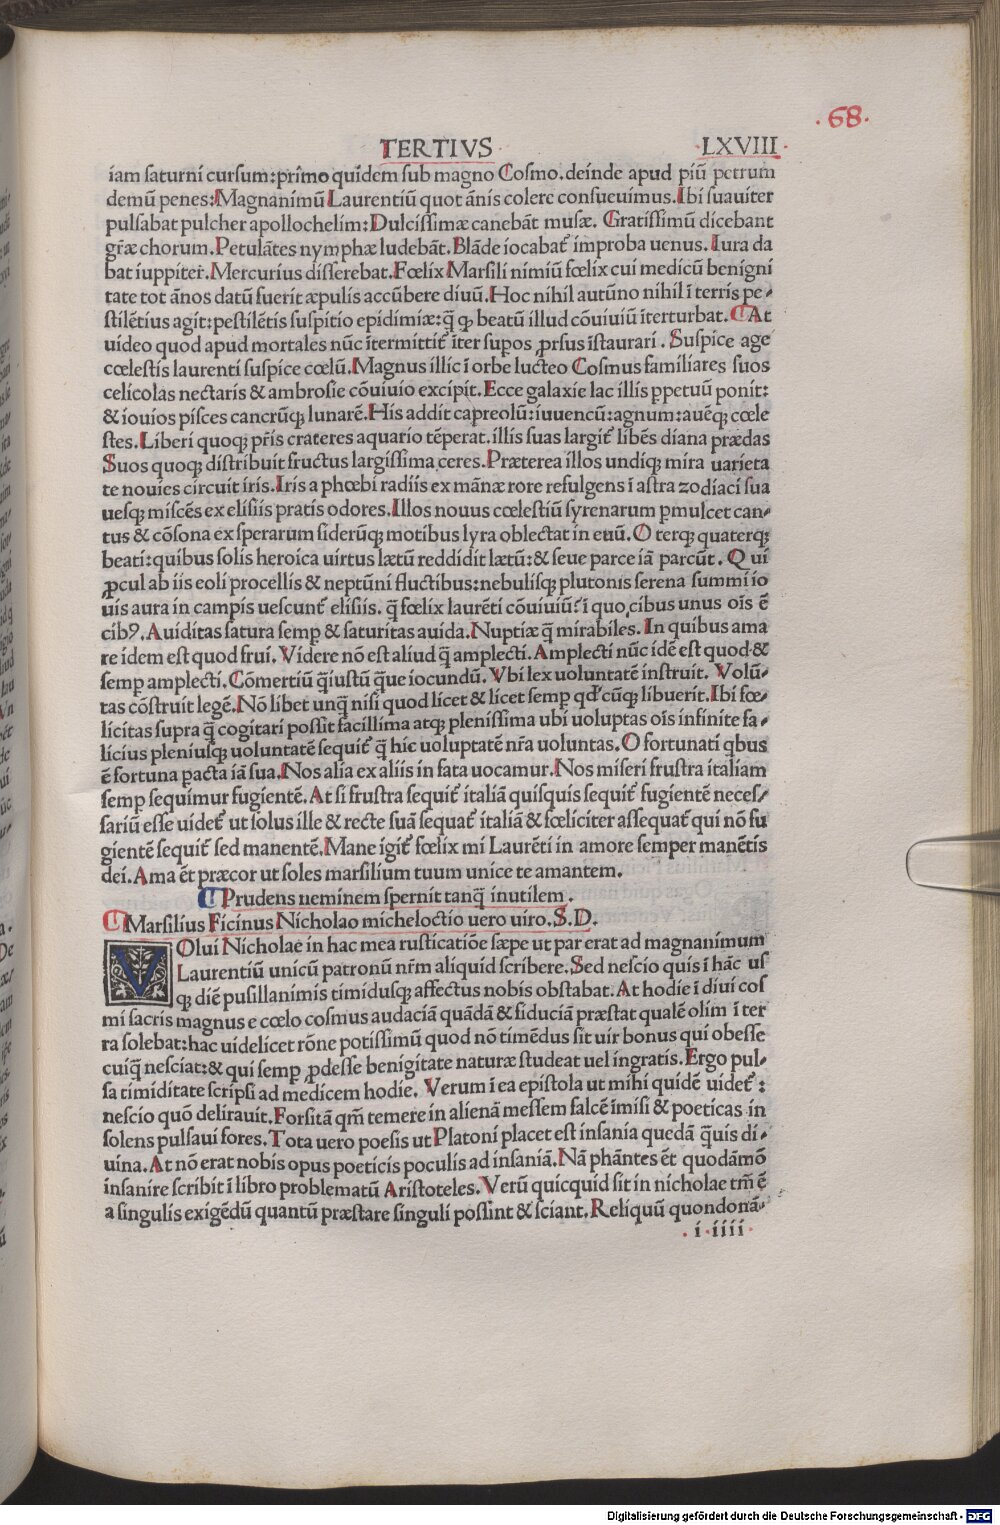 ·68·
TERTIVS LXVIII
iam saturni cursum: primo quidem sub magno Cosmo. deinde apud piũ petrum
demũ penes: Magnanimũ Laurentiũ quot ãnis colere consueuimus. Ibi suauiter
pulsabat pulcher apollochelim: Dulcissimæ canebãt musæ. Gratissimũ dicebant
gr̃æ chorum. Petulãtes nymphæ ludebãt. Blãde iocabat᷑ improba uenus. Iura da
bat iuppiter. Mercurius disserebat. Fœlix Marsili nimiũ fœlix cui medicũ benigni
tate tot ãnos datũ fuerit æpulis accũbere diuũ. Hoc nihil autũno nihil ĩ terris pe⸗
stilẽtius agit: pestilẽtis suspitio epidimiæ: q̃ ꝙ beatũ illud cõuiuiũ ĩterturbat. At
uideo quod apud mortales nũc ĩtermittit᷑ ĩter supos ꝓrsus ĩstaurari. Suspice age
cœlestis laurenti suspice cœlũ. Magnus illic ĩ orbe lucteo Cosmus familiares suos
celicolas nectaris & ambrosie cõuiuio excipit. Ecce galaxie lac illis ꝑpetuũ ponit:
& iouios pisces cancrũqꝫ lunarẽ. His addit capreolũ: iuuencũ: agnum: auẽqꝫ cœle
stes. Liberi quoqꝫ pr̃is crateres aquario tẽperat. illis suas largit᷑ libẽs diana prædas
Suos quoqꝫ distribuit fructus largissima ceres. Præterea illos undiqꝫ mira uarieta
te nouies circuit iris. Iris a phœbi radiis ex mãnæ rore refulgens ĩ astra zodiaci sua
uesqꝫ miscẽs ex elisiis pratis odores. Illos nouus cœlestiũ syrenarum ꝑmulcet can⸗
tus & cõsona ex sperarum siderũqꝫ motibus lyra oblectat in euũ. O terqꝫ quaterqꝫ
beati: quibus solis heroica uirtus lætũ reddidit lætũ: & seue parce iã parcũt. Qui
ꝓcul ab iis eoli procellis & neptũni fluctibus: nebulisqꝫ plutonis serena summi io
uis aura in campis uescunt᷑ elisiis. q̃ fœlix laurẽti cõuiuiũ? ĩ quo cibus unus oĩs ẽ
cibꝰ. Auiditas satura semꝑ & saturitas auida. Nuptiæ q̃ mirabiles. In quibus ama
re idem est quod frui. Videre nõ est aliud q̃ amplecti. Amplecti nũc idẽ est quod &
semꝑ amplecti. Cõmertiũ q̃ iustũ q̃ue iocundũ. Vbi lex uoluntatẽ instruit. Volũ⸗
tas cõstruit legẽ. Nõ libet unq̃ nisi quod licet & licet semꝑ qd᷑ cũqꝫ libuerit. Ibi fœ⸗
licitas supra q̃ cogitari possit facillima atqꝫ plenissima ubi uoluptas oĩs infinite fa⸗
licius pleniusqꝫ uoluntatẽ sequit᷑ q̃ hic uoluptatẽ nr̃a uoluntas. O fortunati qbus
ẽ fortuna pacta iã sua. Nos alia ex aliis in fata uocamur. Nos miseri frustra italiam
semꝑ sequimur fugientẽ. At si frustra sequit᷑ italiã quisquis sequit᷑ fugientẽ neces⸗
sariũ esse uidet᷑ ut solus ille & recte suã sequat᷑ italiã & fœliciter assequat᷑ qui nõ fu
gientẽ sequit᷑ sed manentẽ. Mane igit᷑ fœlix mi Laurẽti in amore semper manẽtis
dei. Ama ẽt præcor ut soles marsilium tuum unice te amantem.
Prudens neminem spernit tanq̃ inutilem.
Marsilius Ficinus Nicholao micheloctio uero uiro. S. D.
VOlui Nicholae in hac mea rusticatiõe sæpe ut par erat ad magnanimum
Laurentiũ unicũ patronũ nr̃m aliquid scribere. Sed nescio quis ĩ hãc us
qꝫ diẽ pusillanimis timidusqꝫ affectus nobis obstabat. At hodie ĩ diui cos
mi sacris magnus e cœlo cosmus audaciã quãdã & fiduciã præstat qualẽ olim ĩ ter
ra solebat: hac uidelicet rõne potissimũ quod nõ timẽdus sit uir bonus qui obesse
cuiq̃ nesciat: & qui semꝑ ꝓdesse benigitate naturæ studeat uel ingratis. Ergo pul⸗
sa timiditate scripsi ad medicem hodie. Verum ĩ ea epistola ut mihi quidẽ uidet᷑:
nescio quõ delirauit. Forsitã qm̃ temere in alienã messem falcẽ imisi & poeticas in
solens pulsaui fores. Tota uero poesis ut Platoni placet est insania quedã q̃uis di⸗
uina. At nõ erat nobis opus poeticis poculis ad insaniã. Nã phãntes ẽt quodãmõ
insanire scribit ĩ libro problematũ Aristoteles. Verũ quicquid sit in nicholae tm̃ ẽ
a singulis exigẽdũ quantũ præstare singuli possint & sciant. Reliquũ quondonã⸗
·i·iiii·
Digitalisierung gefördert durch die Deutsche Forschungsgemeinschaft - DFG